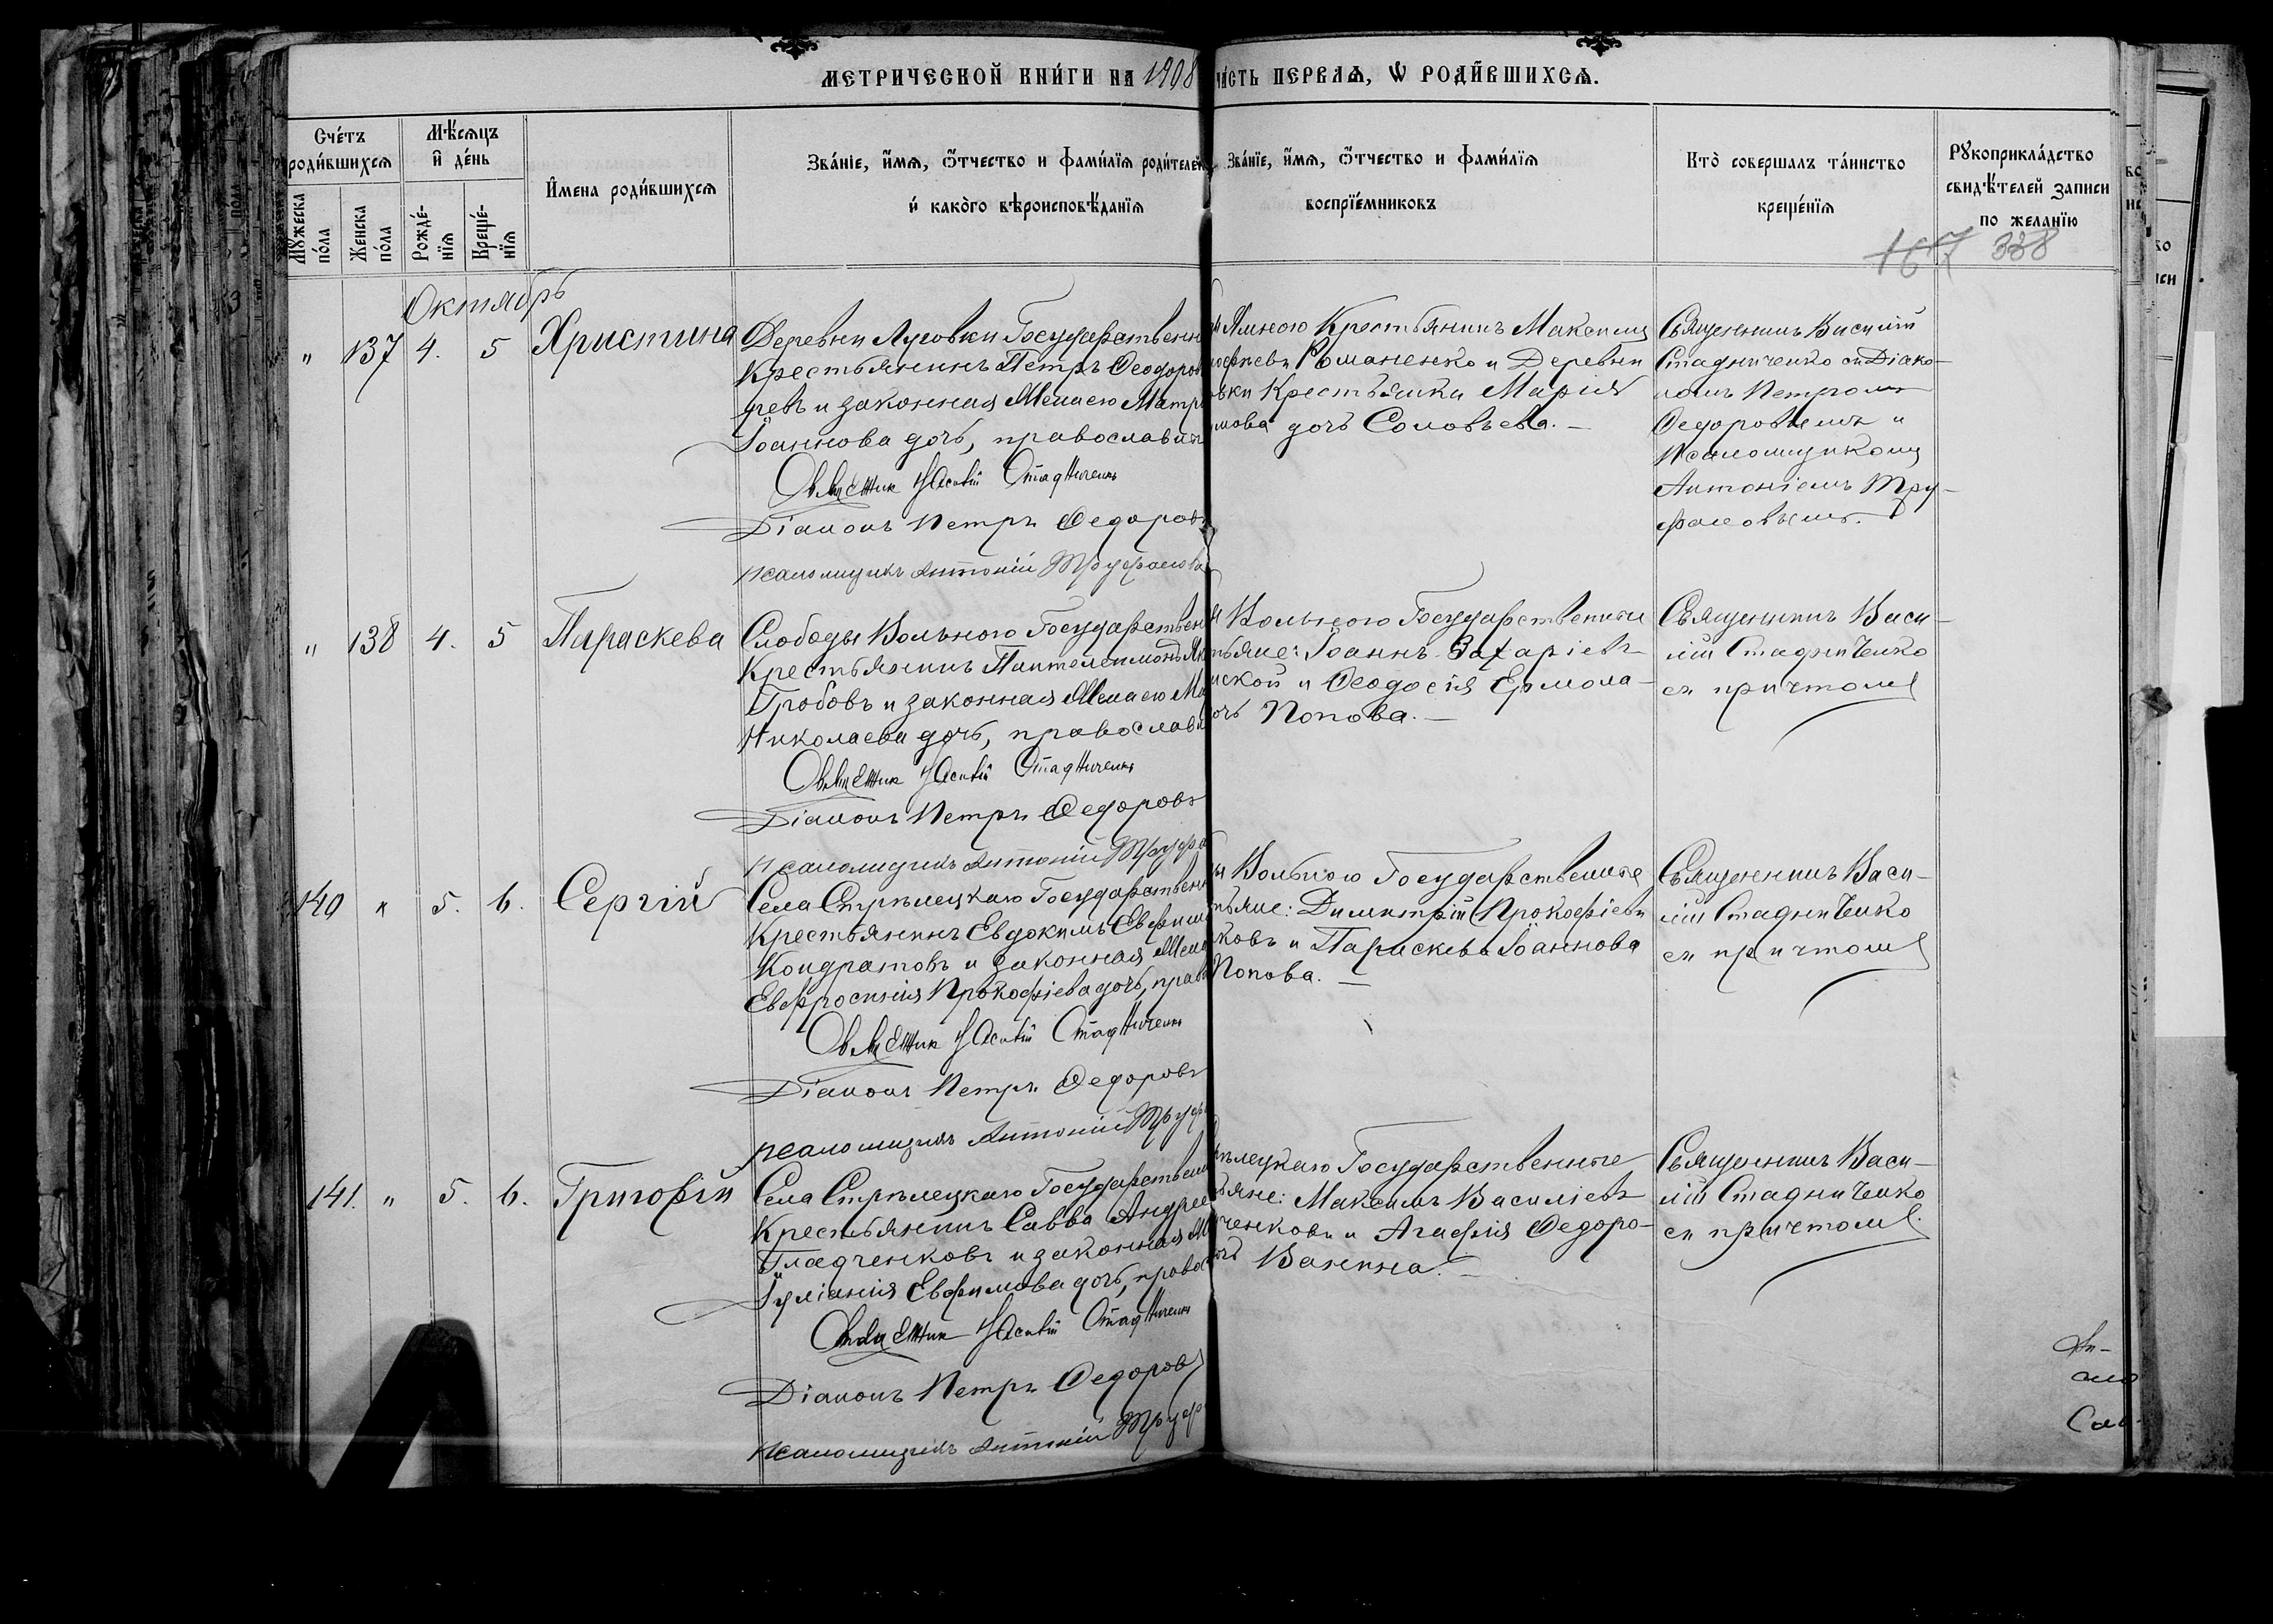 МЕТРИЧЕСКОЙ КНИ́ГИ НА 1908 ЧА́СТЬ ПЕРВАѦ, Ѡ РОДИ́ВШИХСѦ.
Сче́тъ роди́вшихсѧ
Мѣ́сѧцъ и҆ де́нь
И҆мена роди́вшихсѧ
Зва́ніе, и҆́мѧ, ѻ҆́тчество и фами́лїѧ роди́телей
и҆ како̀го вѣроисповѣ́данїѧ
Зва́нїе, и҆́мѧ, ѻ҆́тчество и фами́лїѧ
воспрїе́мниковъ
Кто̀ совершалъ та́инство
креще́нїѧ
Рꙋкоприкла́дство
свидѣ́телей записи
по желанїю
Мꙋжеска по́ла
Женска по́ла
Рожде́-нїѧ
Креще́-нїѧ
167 338
Октябрь
" 137 4. 5 Христина
Деревни Луговки Государственн
Крестьянинъ Петръ Ѳеодоров
и законная Жена его Матр
Іоаннова дочь, православн
Священник Василій Стадниченко
Діаконъ Петръ Ѳедоровъ
псаломщикъ Антоній Труфанов
Ямного Крестьянинъ Максимъ
Романенко и Деревни
овки Крестьянка Марія
мова дочь Соловьева. —
Священникъ Василій
Стадниченко съ Діако-
номъ Петромъ
Ѳедоровымъ и
Псаломщикомъ
Антоніемъ Тру-
фановымъ.
" 138 4. 5 Параскева
Слободы Вольного Государствен
Крестьянинъ Пантелеимонъ Як
Гробовъ и законная Жена его Ма
Николаева дочь, православн
Священник Василій Стадниченко
Діаконъ Петръ Ѳедоровъ
псаломщикъ Антоній Труфа
Вольного Государственные
тьяне: Іоаннъ Захаріевъ
ской и Ѳеодосія Ермола-
очь Попова. —
Священникъ Васи-
лій Стадниченко
съ причтомъ
140 " 5. 6. Сергій
Села Стрѣлецкаго Государственн
Крестьянинъ Евдокимъ Евфим
Кондратовъ и законная Жена
Евфросинія Прокофіева дочь, прав
Священник Василій Стадниченко
Діаконъ Петръ Ѳедоровъ
псаломщикъ Антоній Труф
Вольного Государственные
тьяне: Димитрій Прокофіевъ
ковъ и Параскева Іоаннова
Попова. —
Священникъ Васи-
лій Стадниченко
съ причтомъ
141. " 5. 6. Григорій
Села Стрѣлецкаго Государственн
Крестьянинъ Савва Андрее
Гладченковъ и законная Ж
Іуліанія Евфимова дочь, право
Священник Василій Стадниченко
Діаконъ Петръ Ѳедоровъ
псаломщикъ Антоній Труф
ѣлецкаго Государственные
тьяне: Максимъ Василіевъ
ченковъ и Агафія Ѳедоро-
очь Ванина. —
Священникъ Васи-
лій Стадниченко
съ причтомъ.